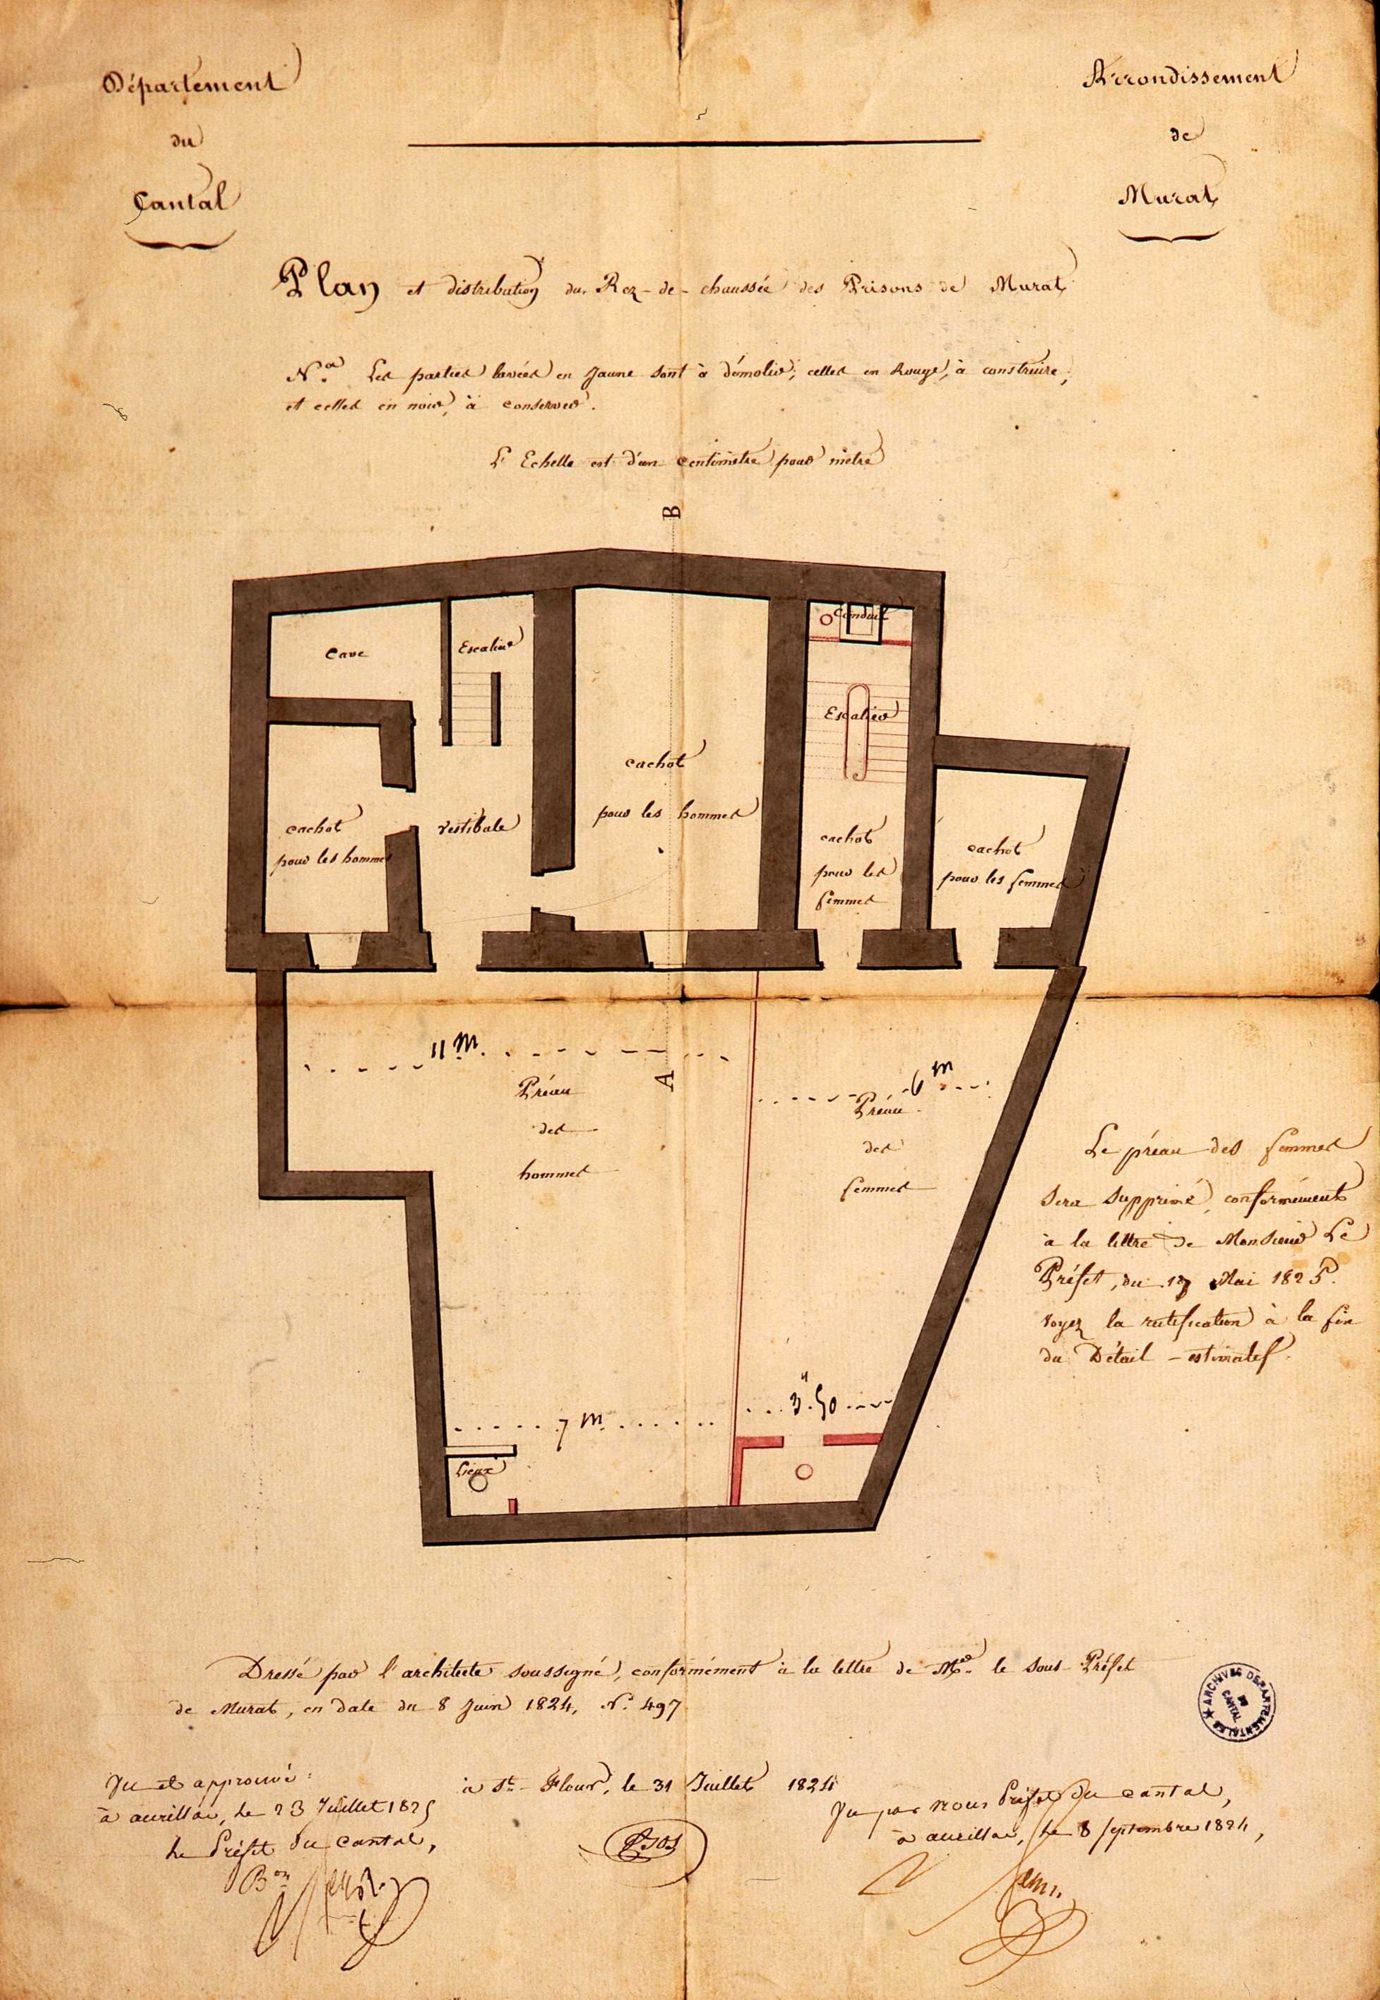 Département
du
Cantal
Arrondissement
de
Murat
Plan et distribution du Rez-de-chaussée des Prisons de Murat
N.a Les parties lavées en Jaune sont à démolir; celles en Rouge, à construire;
et celles en noir, à conserver.
L'Echelle est d'un centimètre pour mètre
B
Cave
Escalier
Conduit
Escalier
cachot
pour les hommes
cachot
pour les hommes
vestibule
cachot
pour les
femmes
cachot
pour les femmes
11 m
A
6 m
Préau
des
hommes
Préau
des
femmes
Le préau des femmes
sera supprimé, conformément
à la lettre de Monsieur Le
Préfet, du 17 Mai 1825.
voyez la rectification à la fin
du Détail-estimatif.
7 m
3 50
Lieux
Dressé par l'architecte soussigné, conformément à la lettre de Mr. le sous-Préfet
de Murat, en date du 8 Juin 1824, N.° 497
ARCHIVES DEPARTEMENTALES
DU
CANTAL
Vu et approuvé:
à aurillac, le 23 Juillet 1825
le Préfet du Cantal,
Bon
à St-Flour, le 31 Juillet 1824
Vu par nous Préfet du Cantal,
à aurillac, le 8 septembre 1824,